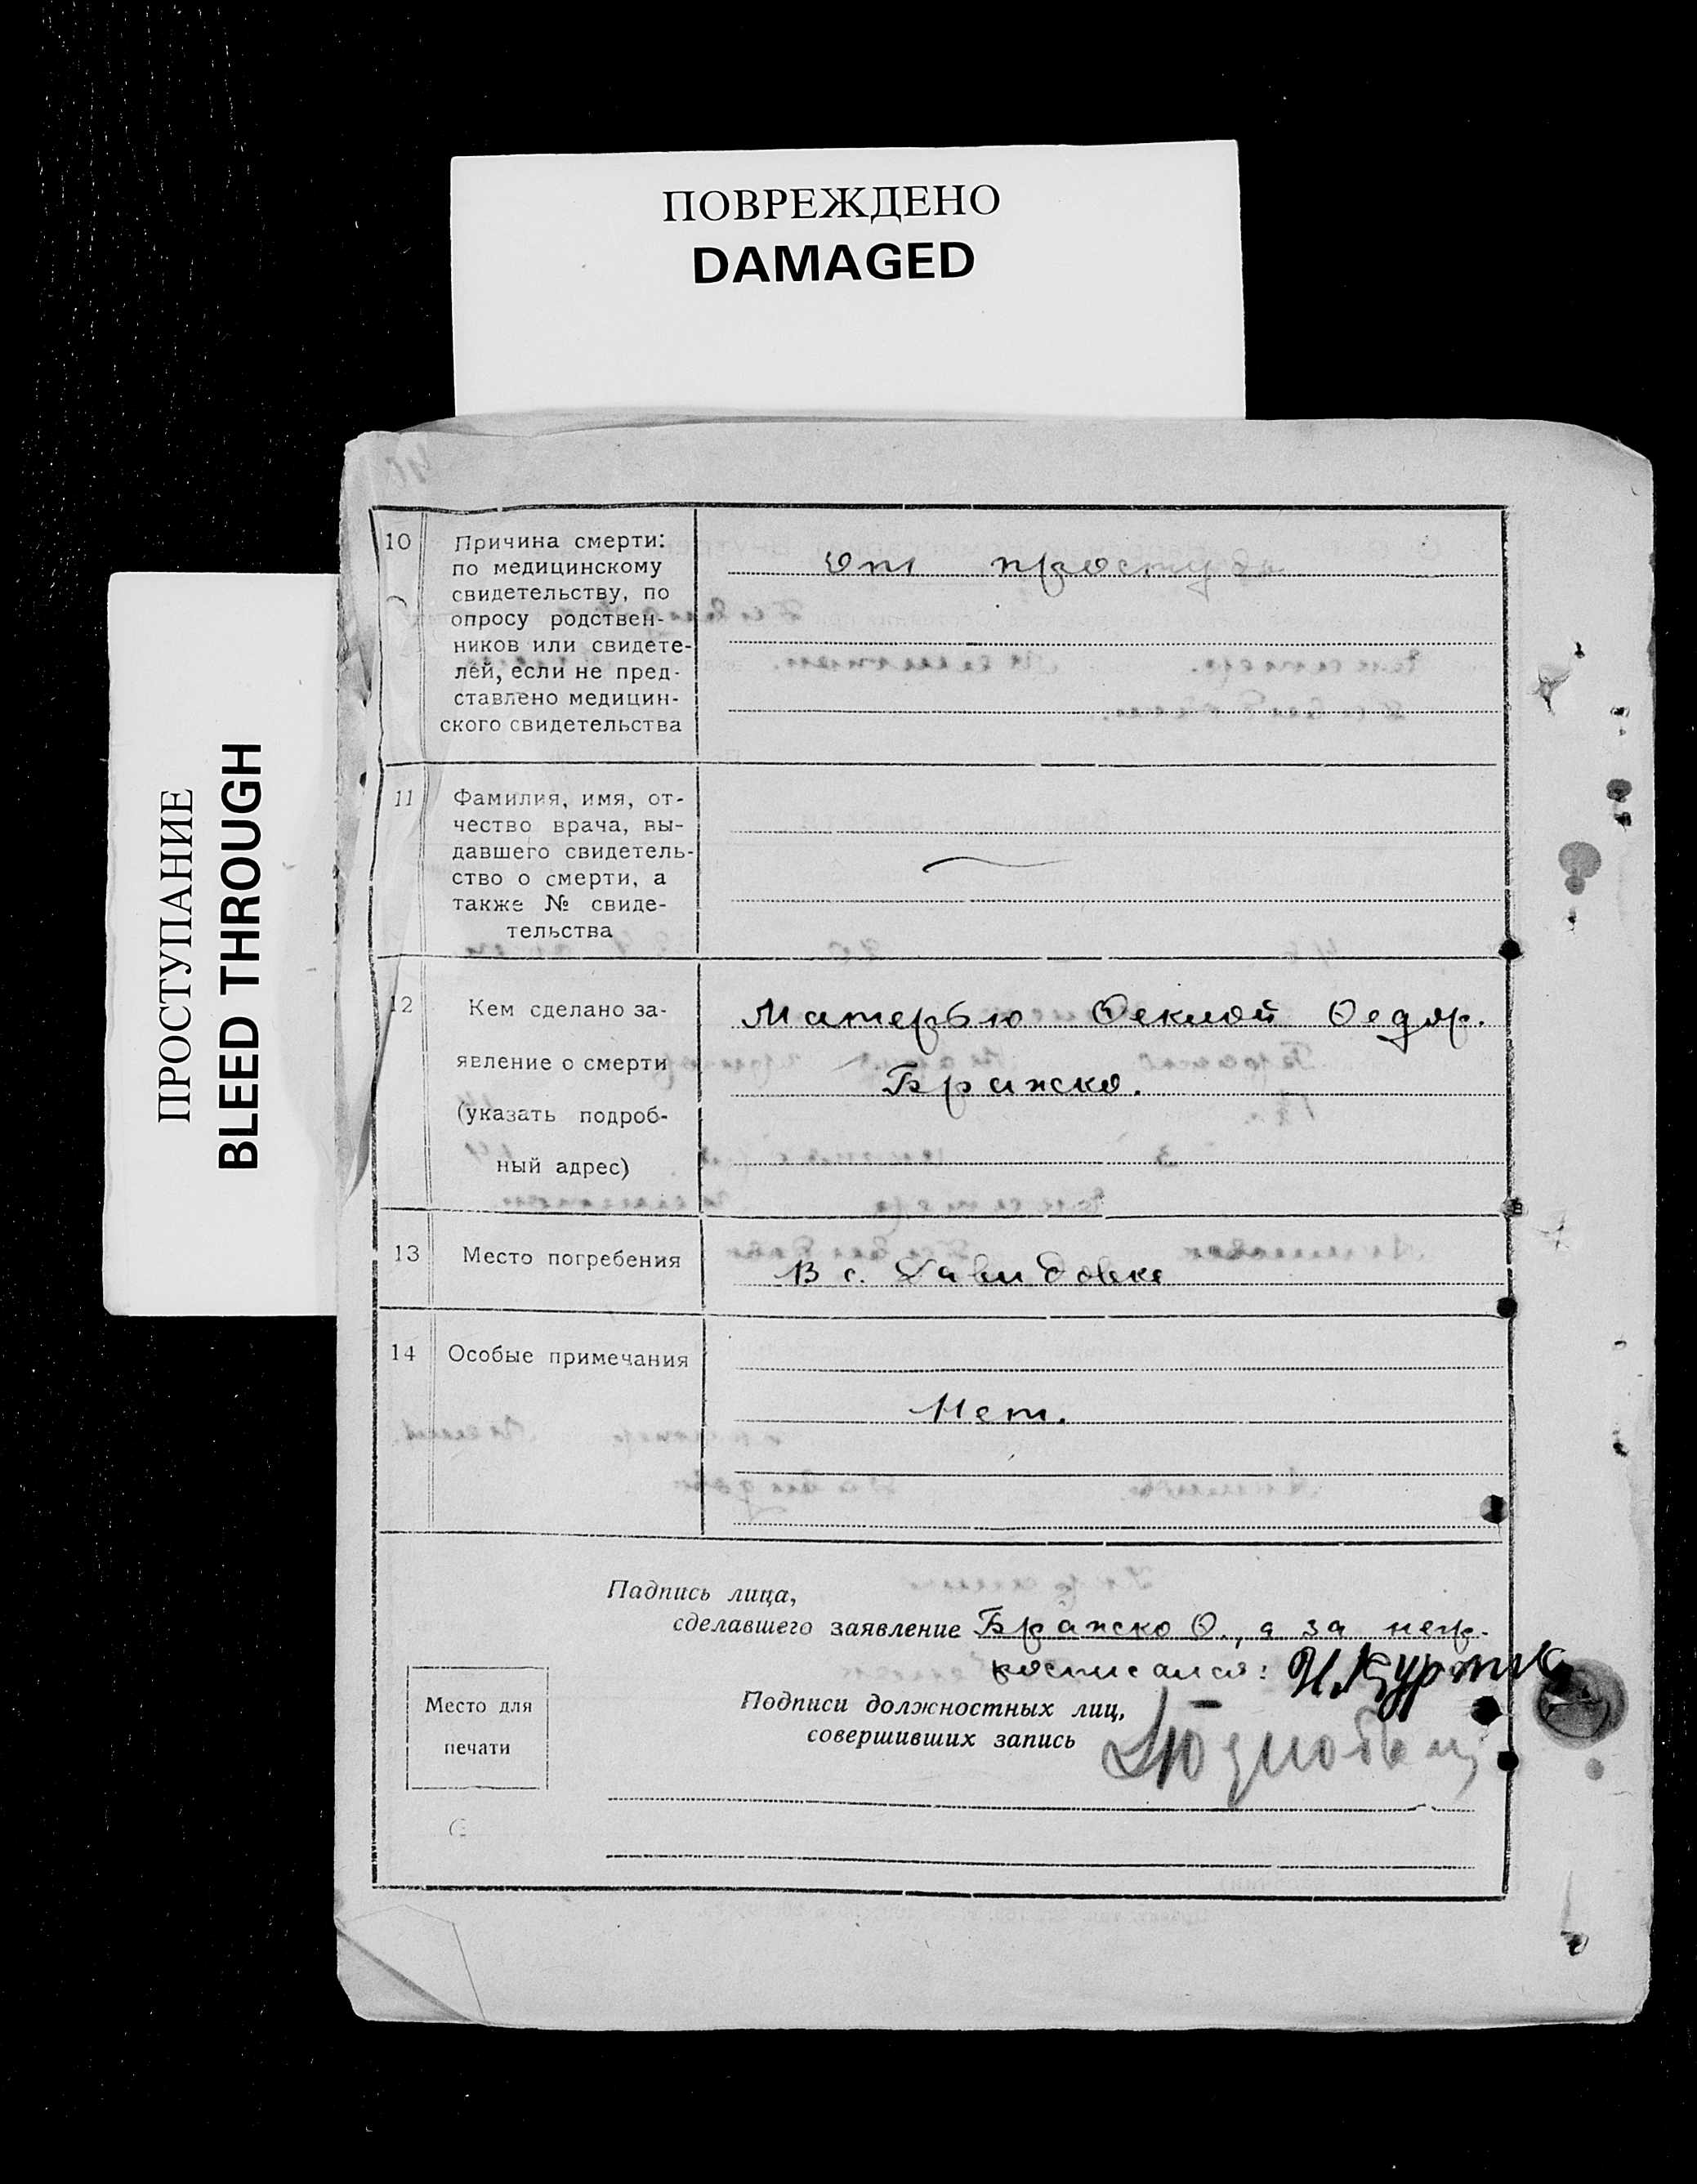 ПОВРЕЖДЕНО
DAMAGED
ПРОСТУПАНИЕ
BLEED THROUGH
10
Причина смерти:
по медицинскому
свидетельству, по
опросу родствен-
ников или свидете-
лей, если не пред-
ставлено медицин-
ского свидетельства
От простуды
11
Фамилия, имя, от-
чество врача, вы-
давшего свидетель-
ство о смерти, а
также № свиде-
тельства
12
Кем сделано за-
явление о смерти
(указать подроб-
ный адрес)
Матерью Феклой Федор.
Бражско.
13
Место погребения
В с. Давидовке
14
Особые примечания
Нет.
Падпись лица,
сделавшего заявление Бражско Ф., а за негр.
росписался:
Место для
печати
Подписи должностных лиц,
совершивших запись